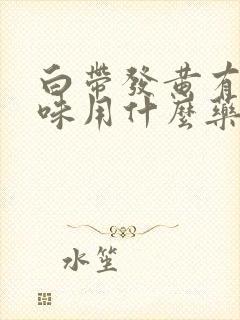 白帶發黄有
味用什麼藥
水笙